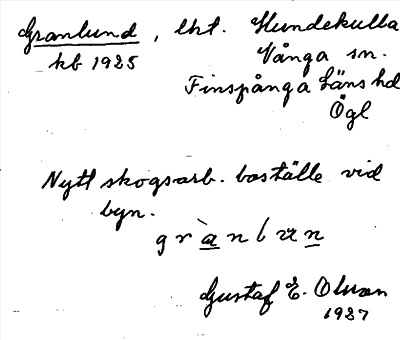 Granlund, lht. Hundekulla
kb 1925
Vånga sn.
Finspånga Läns hd
Ögl
Nytt skogsarb. boställe vid
byn.
Gustaf E. Olson
1927